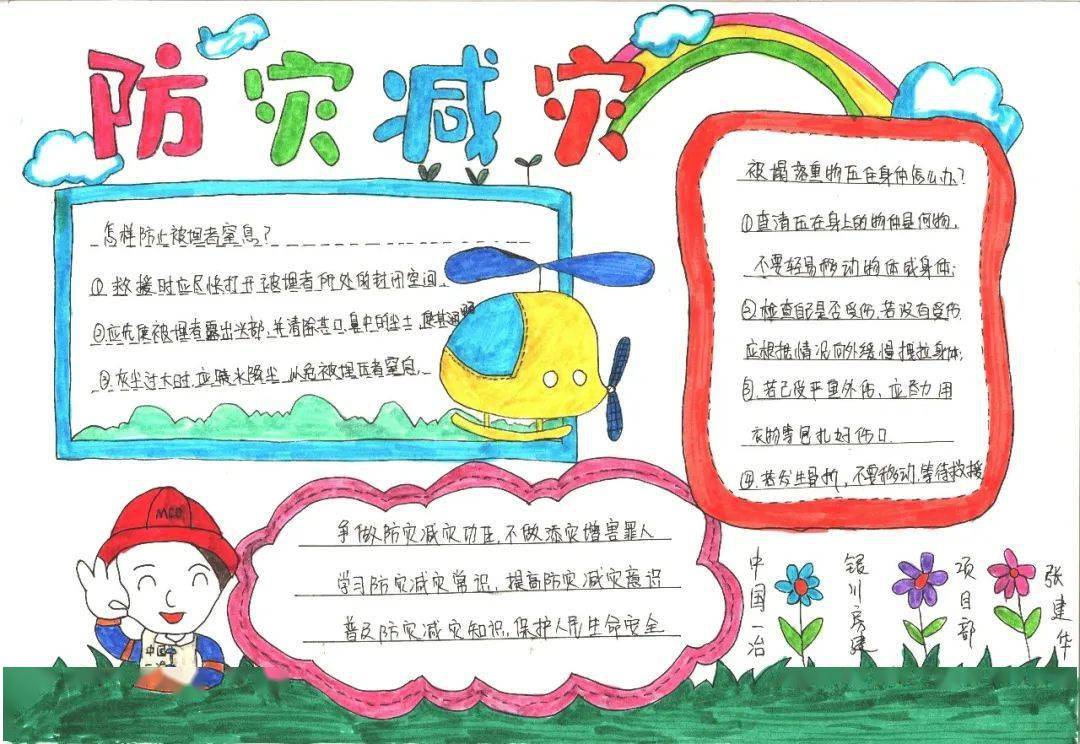 防灾减灾
怎样防止被埋者窒息?
①救援时应尽快打开被埋者所处的封闭空间.
②应优先被埋者露出头部,并清除其口、鼻中的尘土,
③灰尘过大时,应喷水降尘,以免被埋压者窒息.
被塌落重物压在身体怎么办?
①查清压在身上的物体是何物,
不要轻易移动物体或身体;
②检查自己是否受伤.若没有受伤
应根据情况向外缓慢提拉身体;
③.若已没严重外伤,应尽力用
衣物等包扎好伤口.
④.若发生骨折,不要移动,等待救援
争做防灾减灾功臣,不做添灾增害罪人
学习防灾减灾常识,提高防灾减灾意识
普及防灾减灾知识,保护人民生命安全
MCC
中国
一冶
中国一冶
银川房建
项目部
张建华